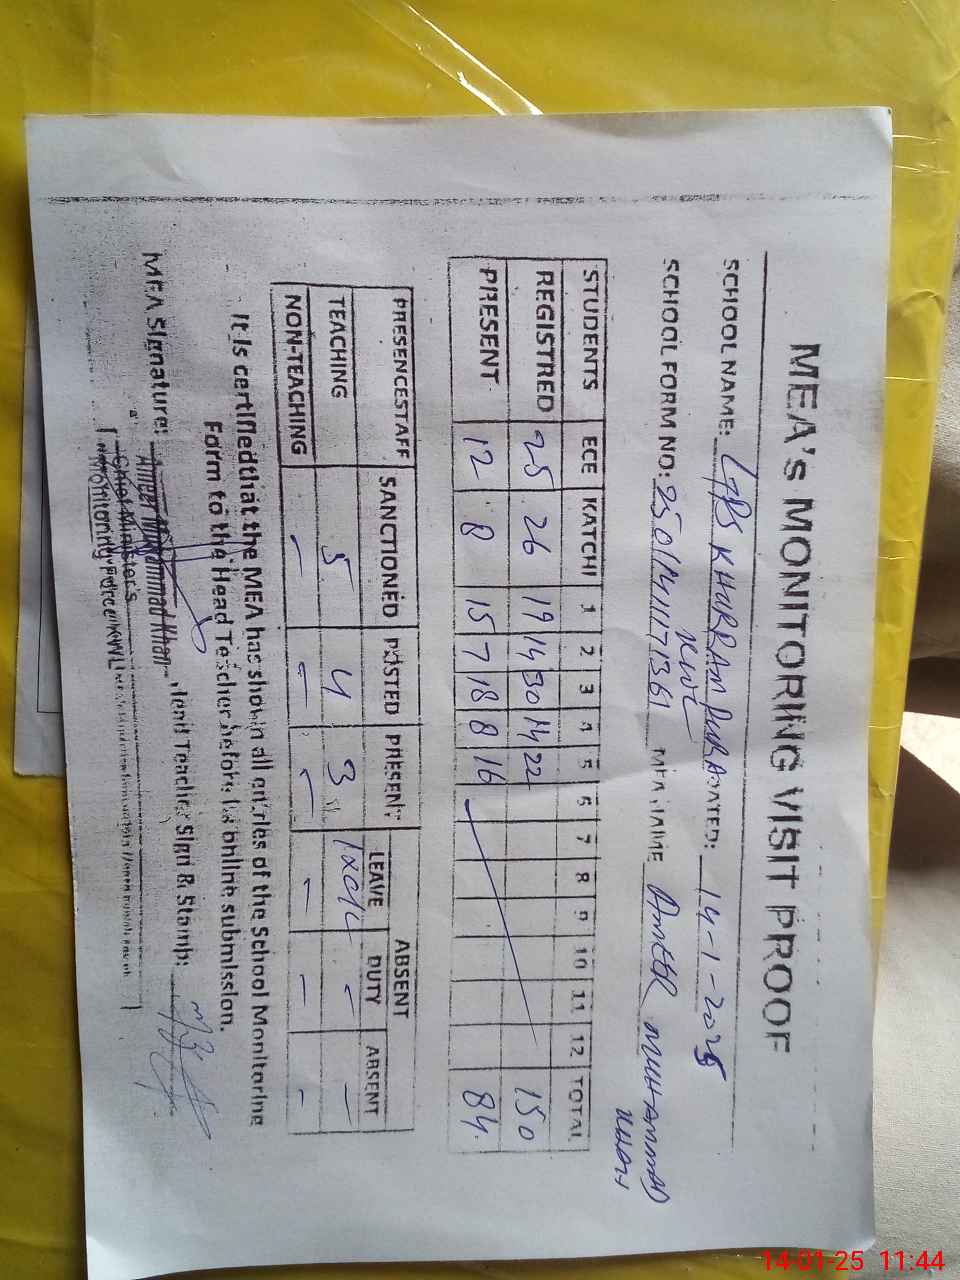 MEA's MONITORING VISIT PROOF
SCHOOL NAME: GPS KHURRAM PURA DATED: 14-1-2025
SCHOOL FORM NO: MEA NAME AMEER MUHAMMAD KHAN
STUDENTS ECE KATCHI 1 2 3 4 5 6 7 8 9 10 11 12 TOTAL
REGISTRED 25 26 19 14 30 14 22 150
PRESENT 12 8 15 7 18 8 16 84
PRESENCESTAFF SANCTIONED POSTED PRESENT ABSENT
LEAVE DUTY ABSENT
TEACHING 5 4 3 - -
NON-TEACHING - - - - - -
It is certifiedthat the MEA has shown all entries of the School Monitoring
Form to the Head Teacher before its online submission.
MEA Signature: Head Teacher Sign & Stamp:
Ameer Muhammad Khan
Chief Minister's
Monitoring Force
14-01-25 11:44